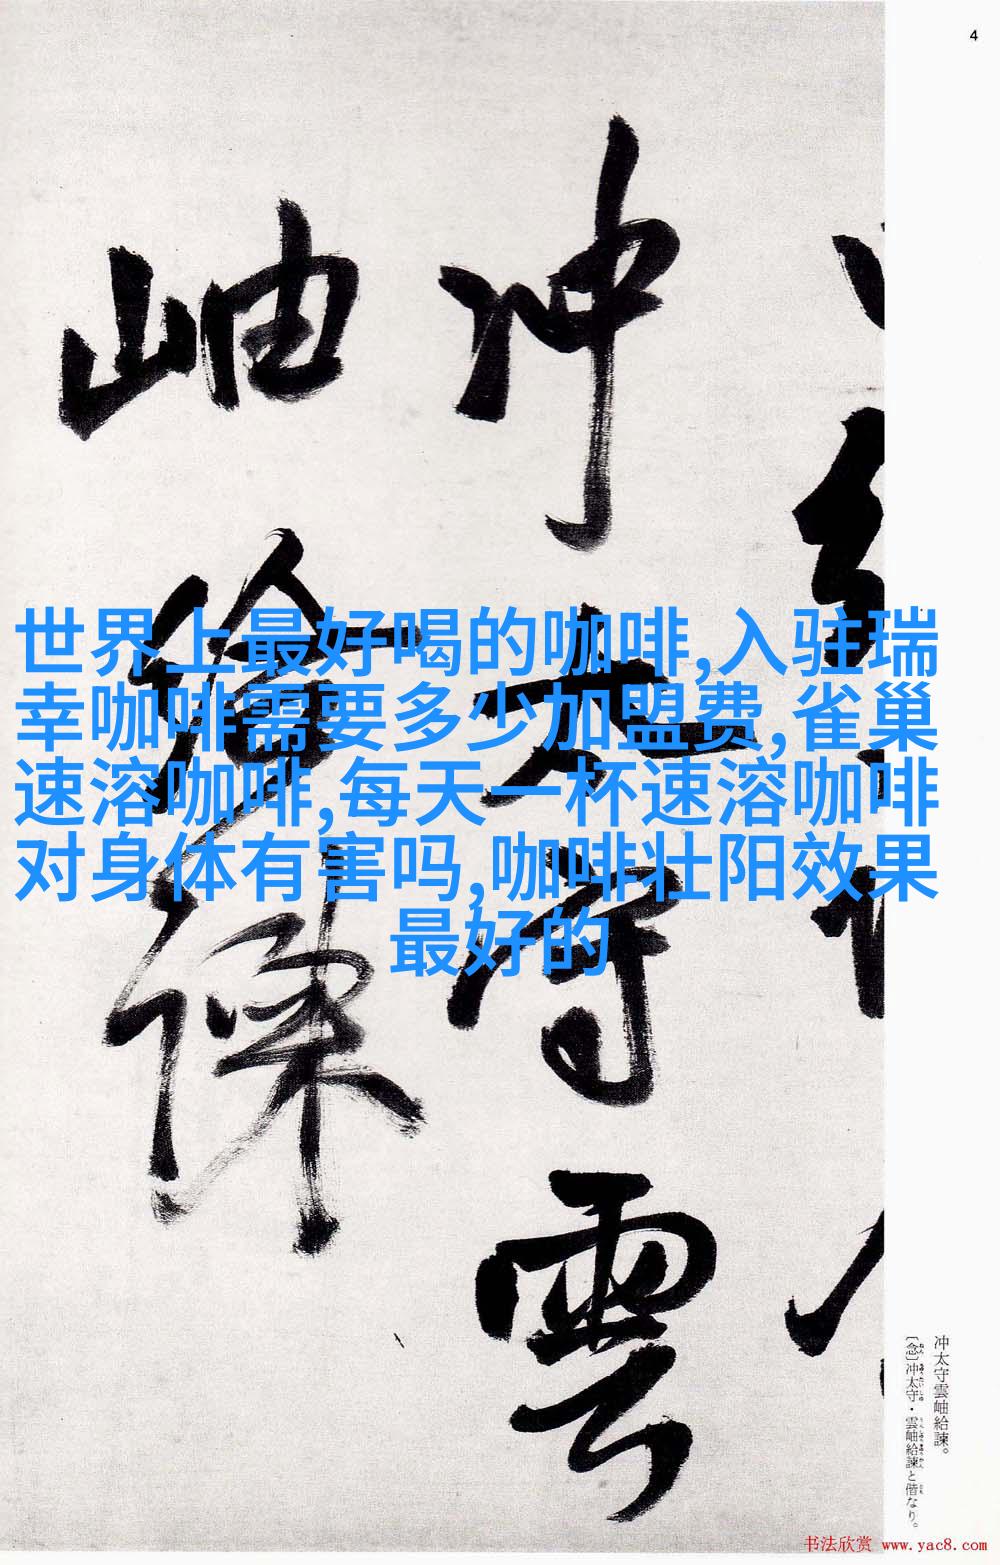 4
世界上最好喝的咖啡,入驻瑞
幸咖啡需要多少加盟费,雀巢
速溶咖啡,每天一杯速溶咖啡
对身体有害吗,咖啡壮阳效果
最好的
冲太守雲
岫給諫
冲太守雲岫給諫。
〔念〕冲太守・雲岫給諫と偕なり。
书法欣赏 www.yac8.com